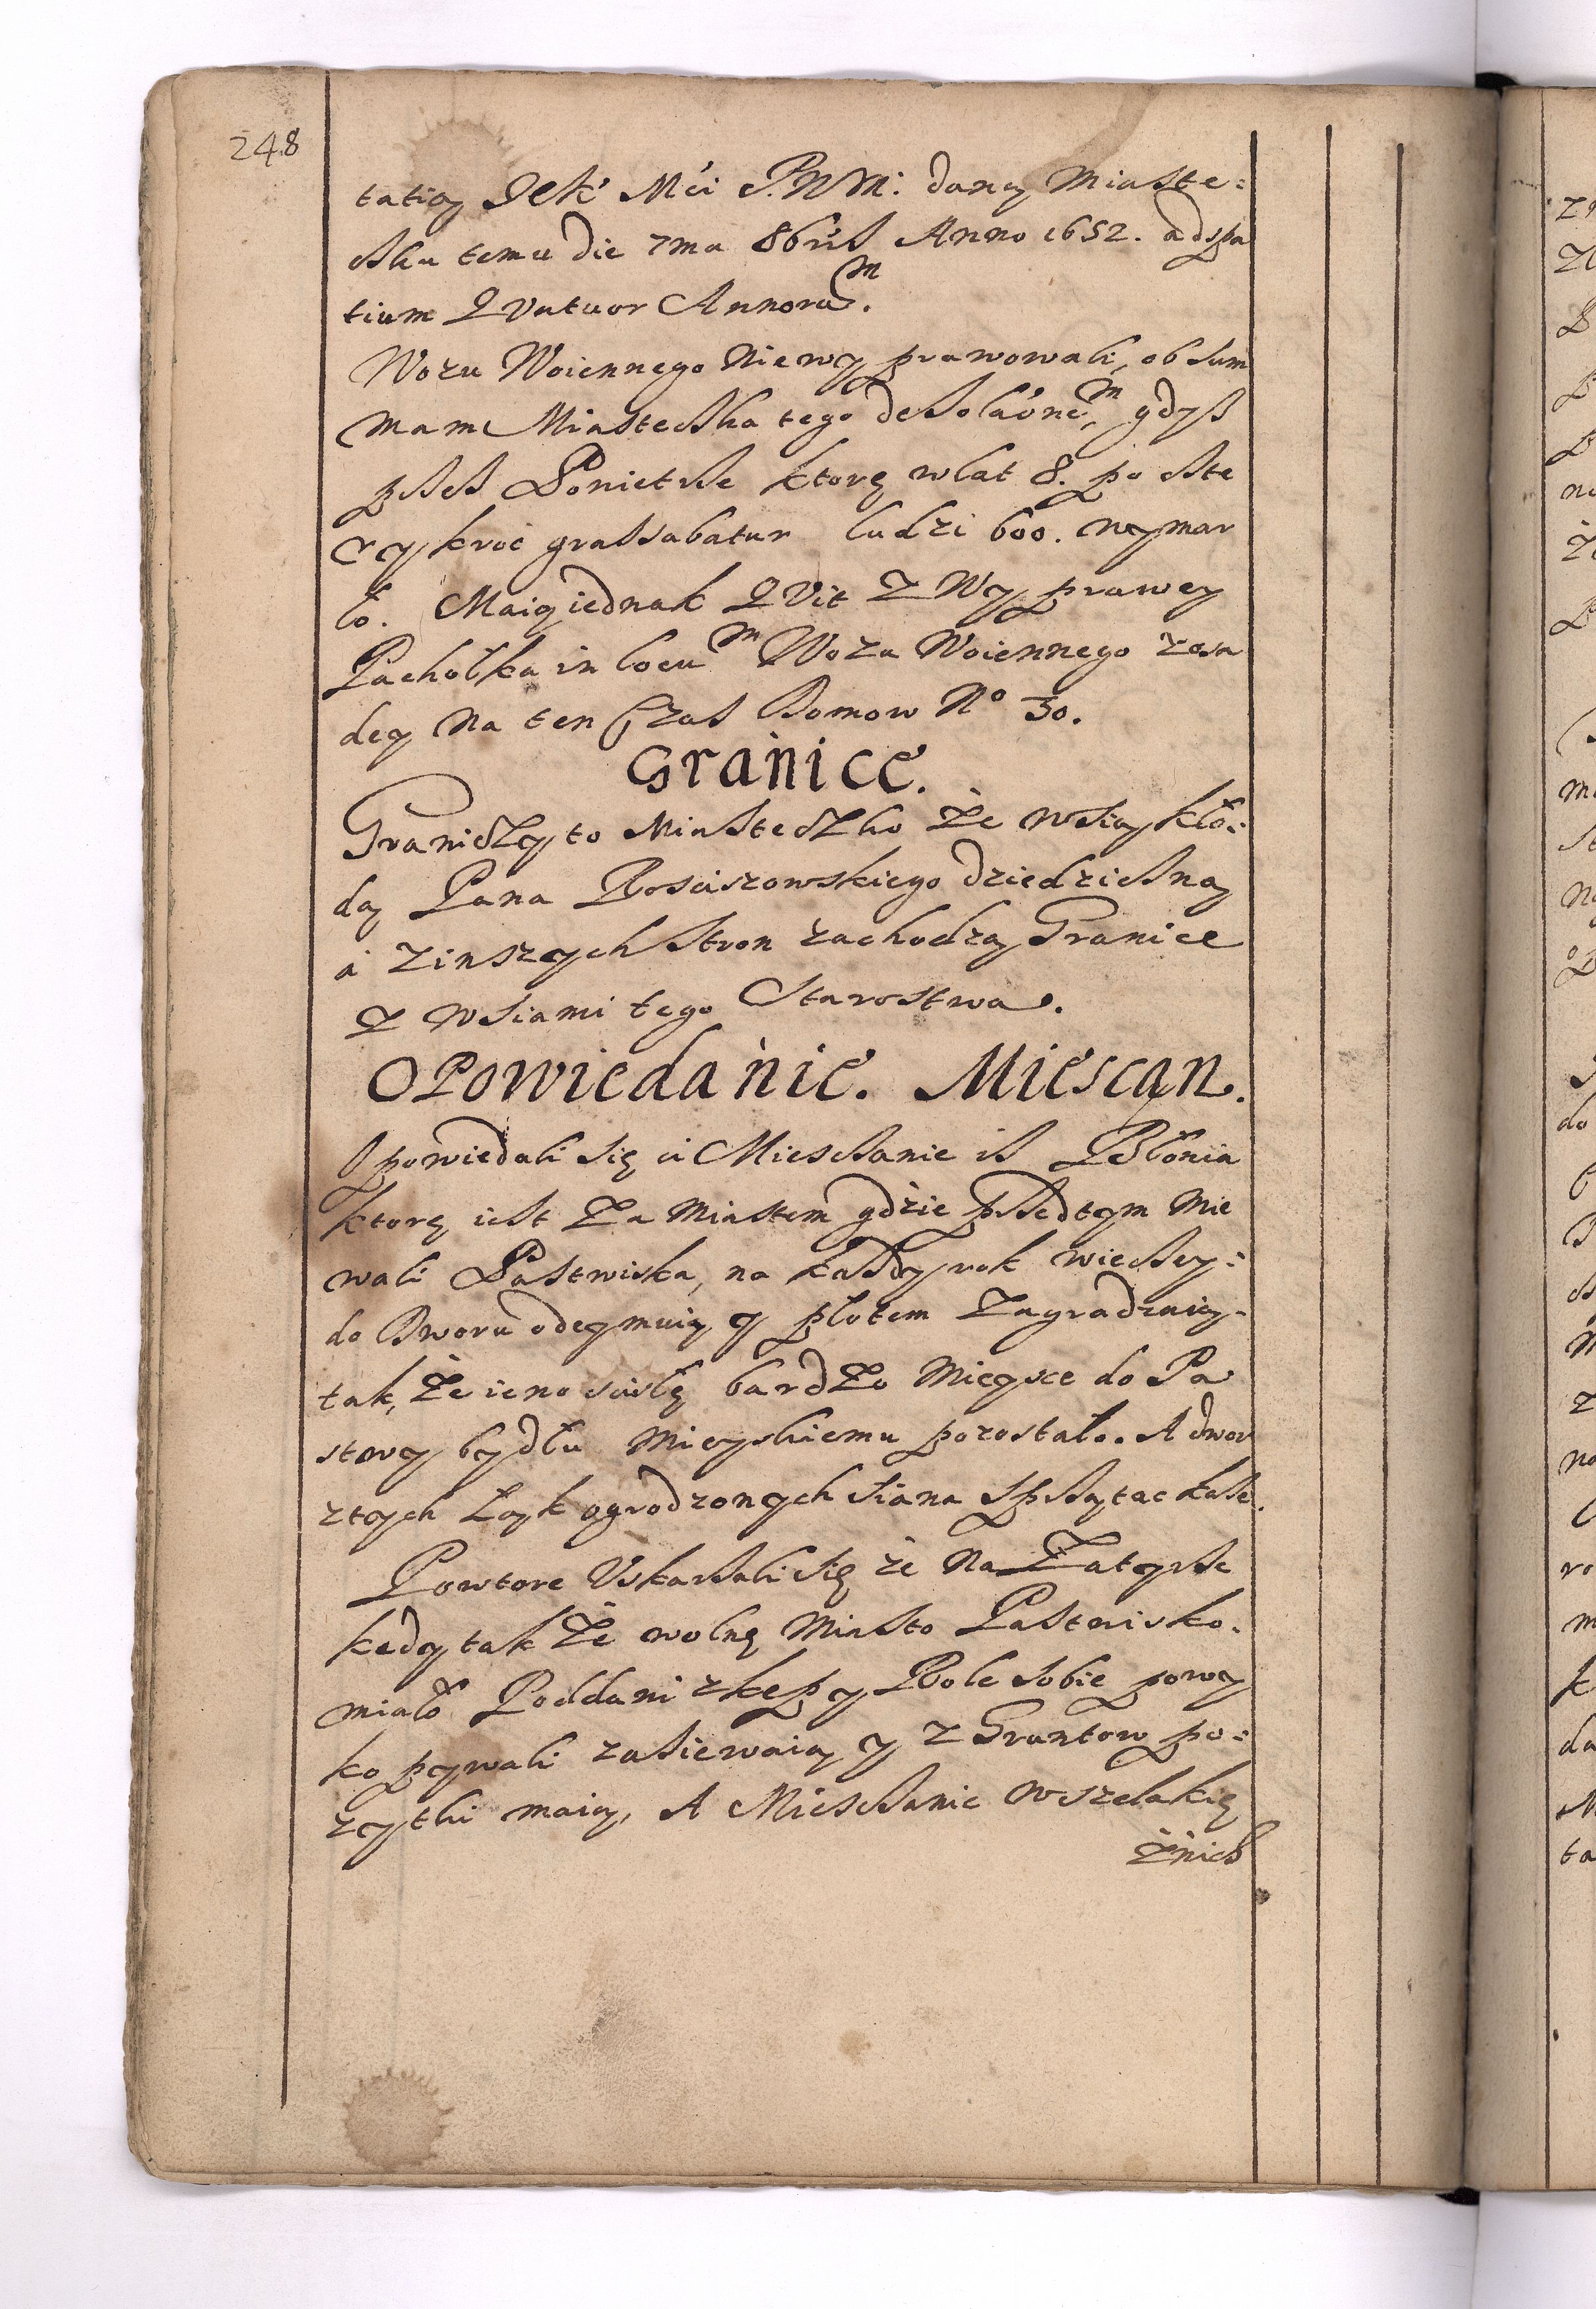 248
tatią JeK° Mći P. N M: daney Miaste=
czku temu die 7ma 8bris Anno 1652. ad spa
tium Qvatuor Annorum.
Wozu Woiennego Nie wyprawowali, ob sum
mam Miasteczka tego desolaõnem, gdysz
przez Powietrze ktorę w lat 8. po czte
rykroć grassabatur ludzi 600. wymar
ło. Maią iednak Qvit Z Wyprawey
Pachołka in locum Woza Woiennego zosa
dey Na ten Czas Domow No 30.
Granice.
Graniczy to Miasteczko Ze wsią Kło=
dą Pana Rosciszowskiego dziedziczną
á z inszych stron zachodzą Granice
Z wsiami tego Starostwa.
Opowiedanie. Miescan.
Opowiedali się ci Miesczanie isz Błonia
ktorę iest Za Miastem gdzie przedtym Mie
wali Pastwiska, na każdy rok wieczey=
do Dworu odeymuią y płotem Zagradzaią=
tak, Że ieno scisłę bardzo Mieysce do Pa
stwy bydłu Mieyskiemu pozostało. A dwor
z tych Łąk ogrodzonych siana sprzątac każe.
Powtore Uskarzali się że Na Zatyrze
kędy takŻe wolnę Miasto Pastwisko.
miało Poddani z kępy Role sobie powy
kopywali zasiewaią y z Gruntow po=
zytki maią, A Miesczanie wszelakię
z nich